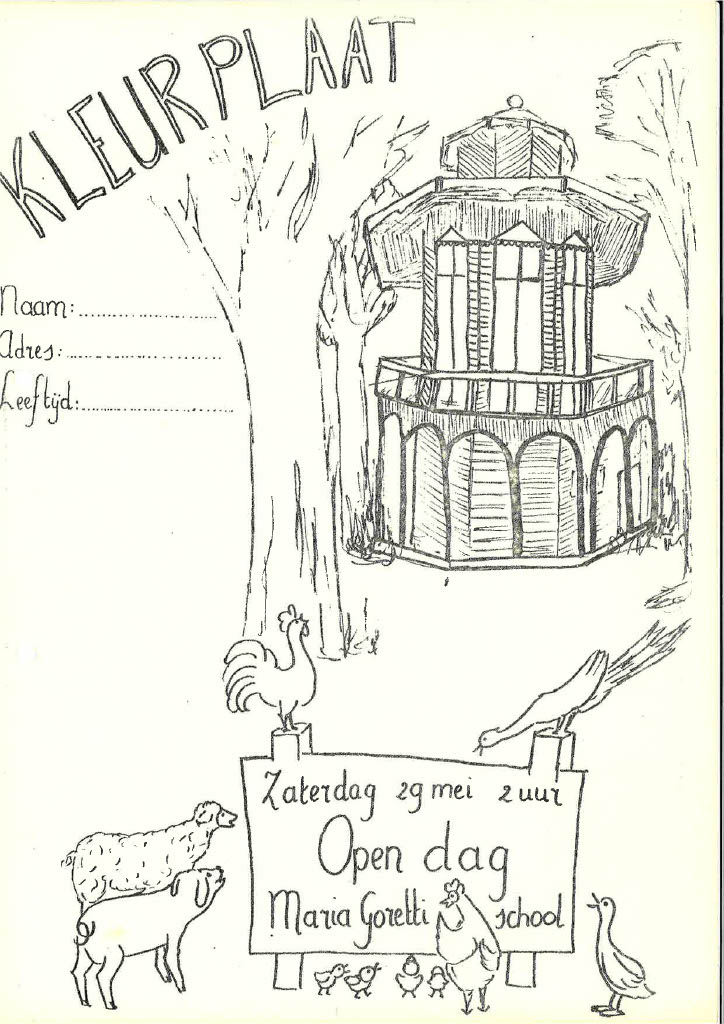 KLEURPLAAT
Naam:
Adres:
Leeftijd:
Zaterdag 29 mei 2 uur
Open dag
Maria Goretti school